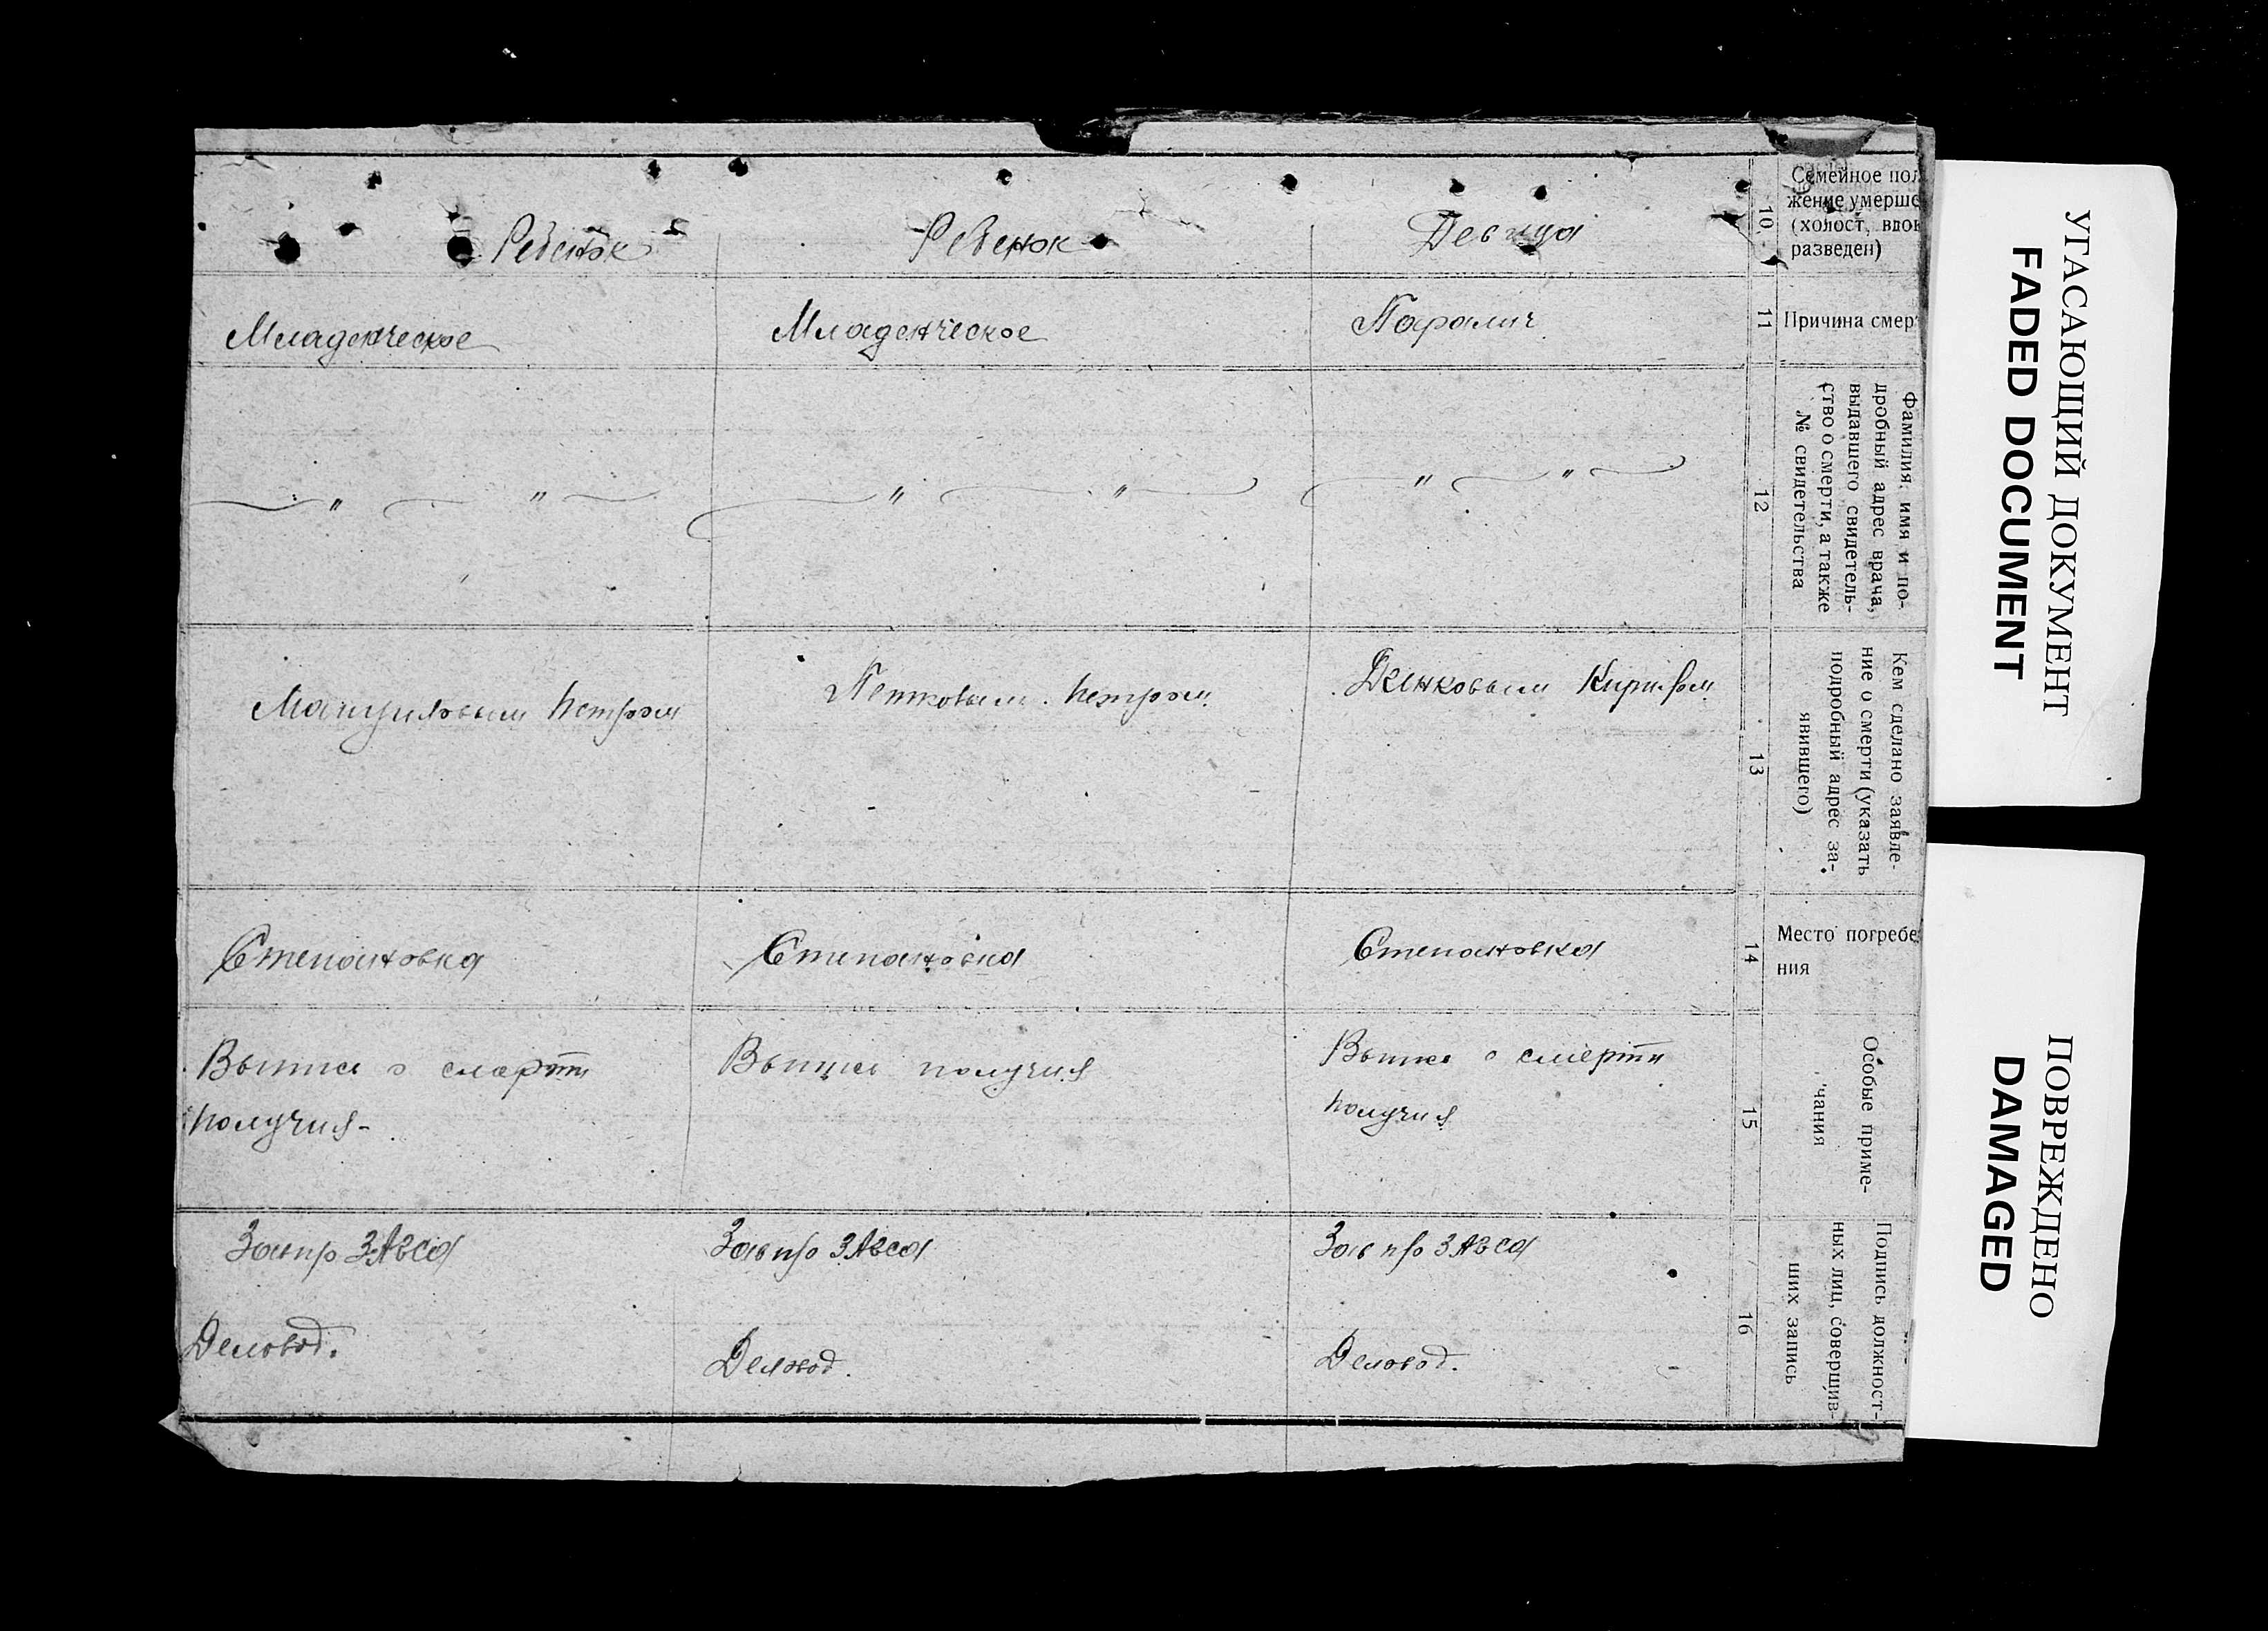 Ребенок
Ребенок
Девица
10.
Семейное пол
жение умерше
(холост, вдов
разведен)
Младенческое
Младенческое
Паралич
11
Причина смер
12
Фамилия, имя и по-
дробный адрес врача,
выдавшего свидетель-
ство о смерти, а также
№ свидетельства
Петром
Петковым Петром
Дженковым
13
Кем сделано заявле-
ние о смерти (указать
подробный адрес за-
явившего)
Степановка
Степановка
Степановка
14
Место погребе
ния
о смерти
получил
получил
о смерти
получил
15
Особые приме-
чания
Завпр ЗАГСа
Завпр ЗАГСа
Завпр ЗАГСа
Деловод.
Деловод.
Деловод.
16
Подпись должност-
ных лиц, совершив-
ших запись
УГАСАЮЩИЙ ДОКУМЕНТ
FADED DOCUMENT
ПОВРЕЖДЕНО
DAMAGED